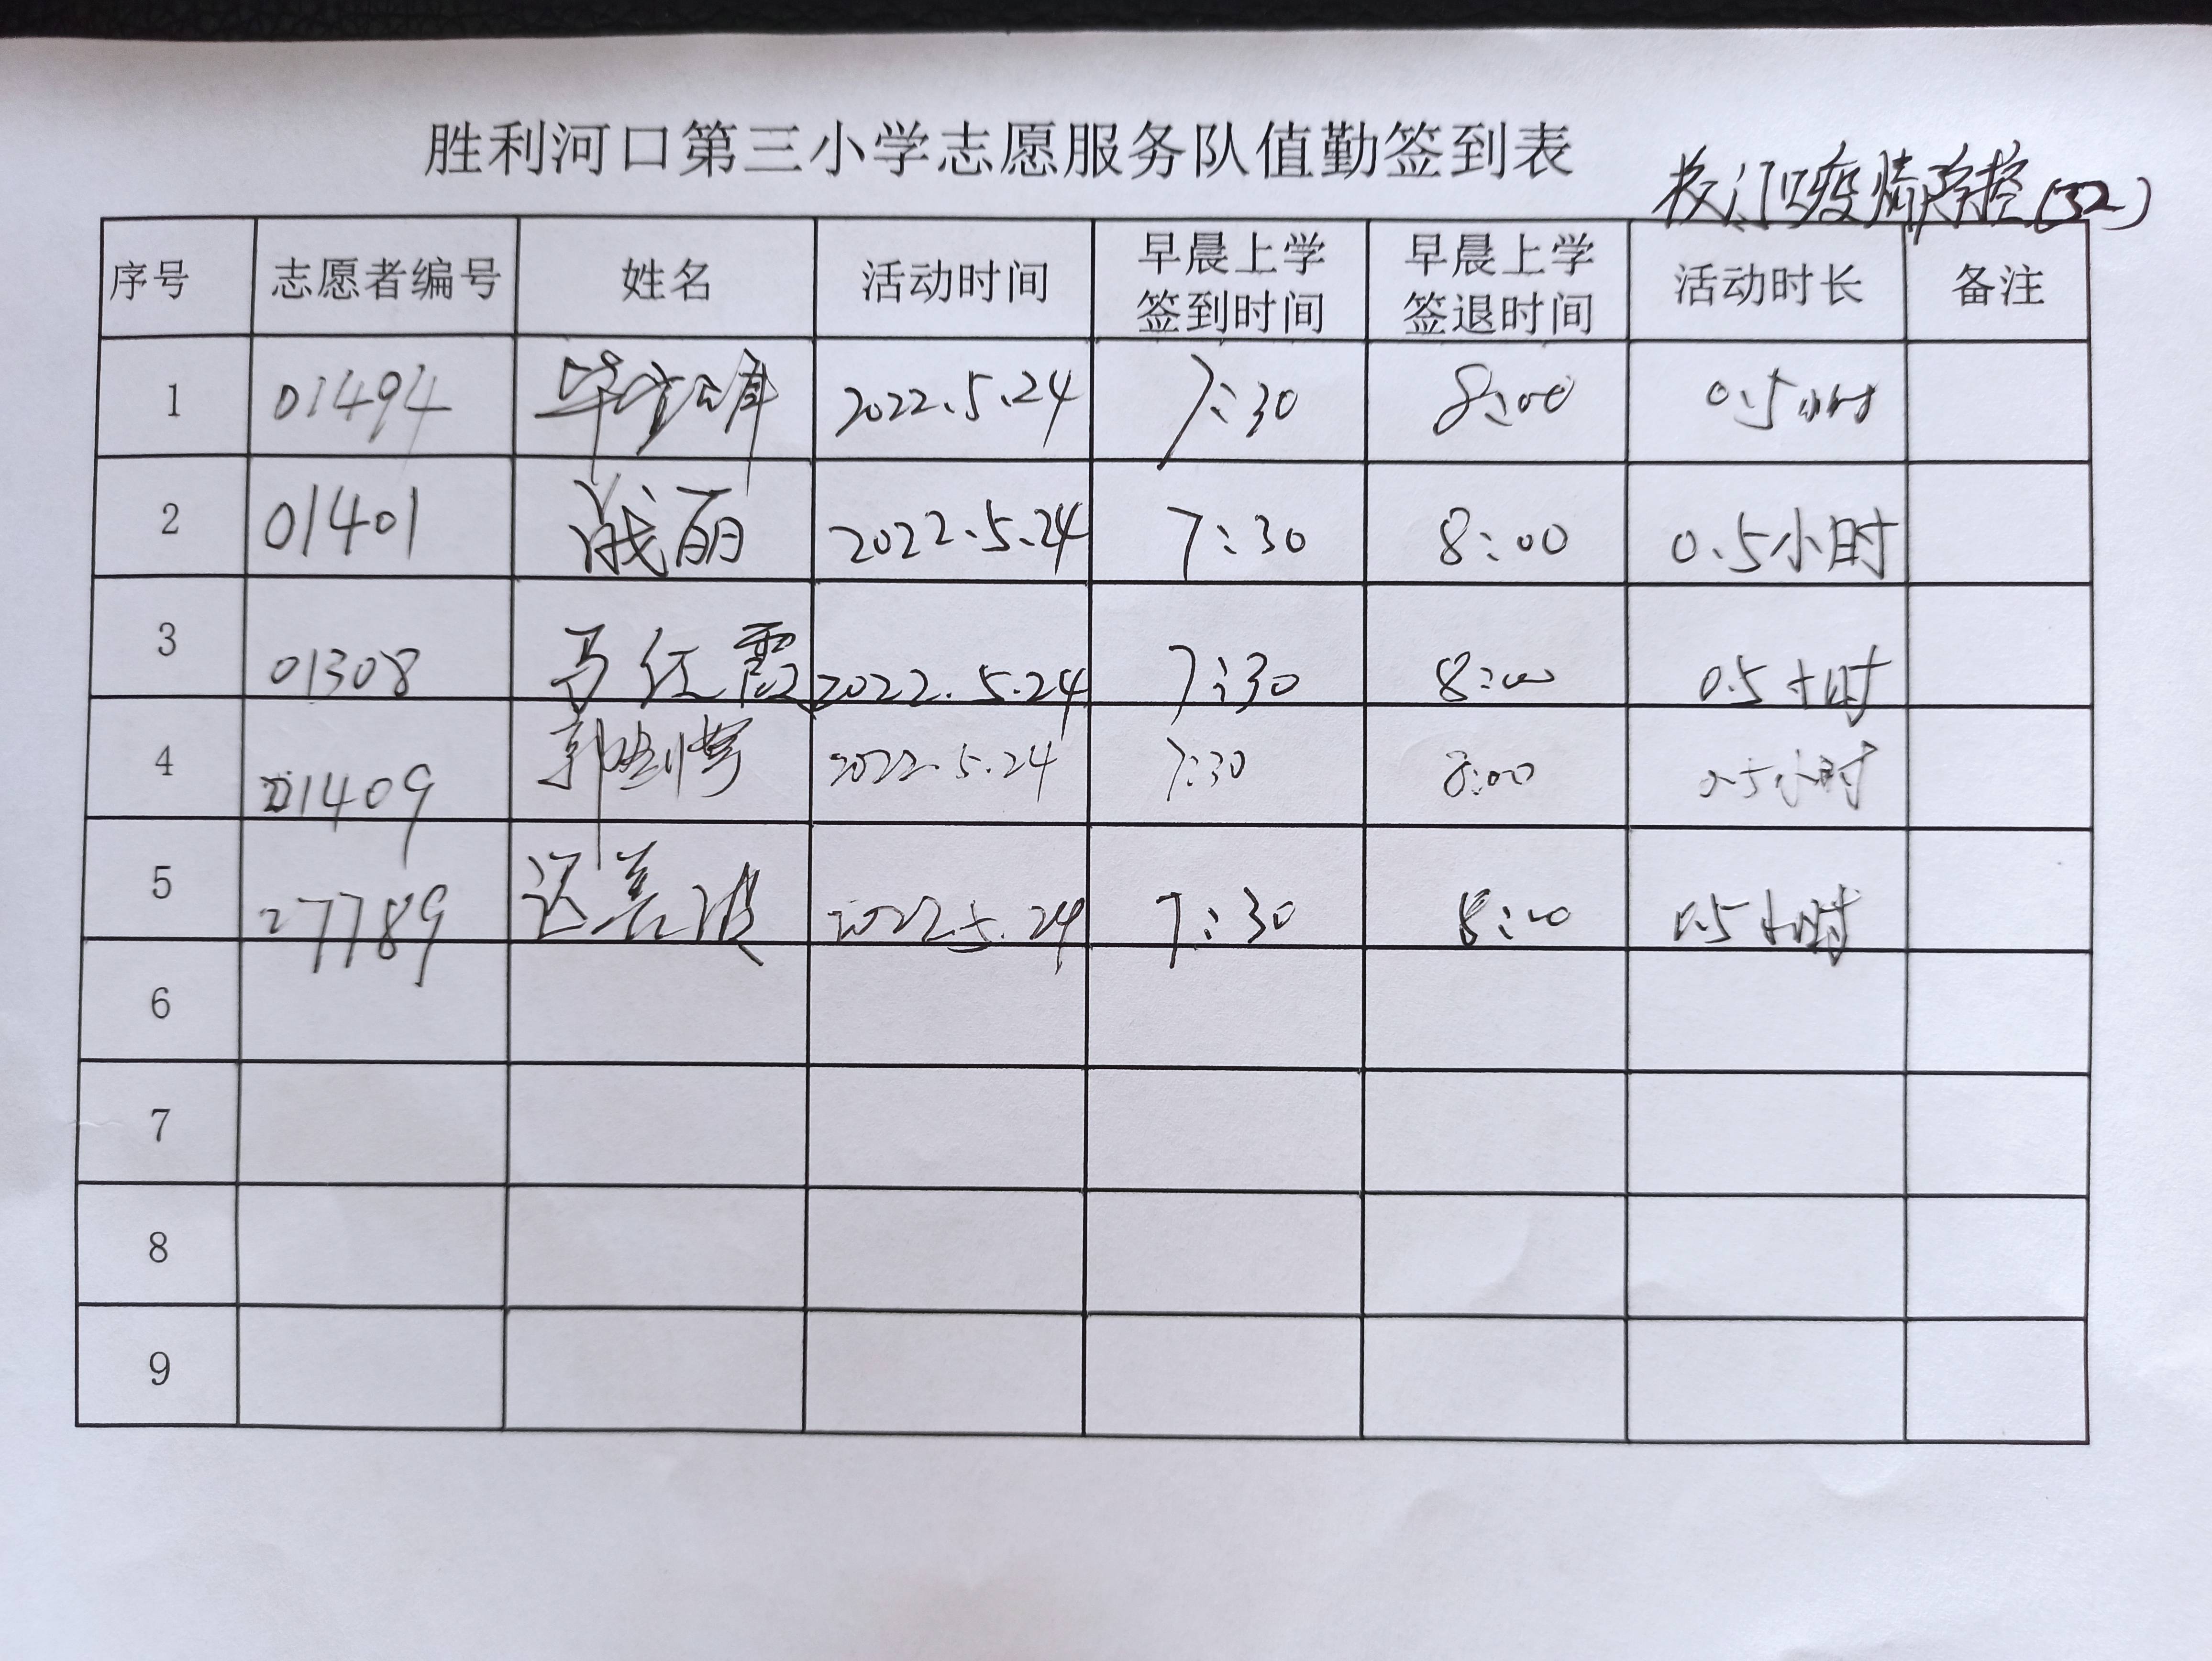 胜利河口第三小学志愿服务队值勤签到表
校门口疫情防控(32)
序号 志愿者编号 姓名 活动时间 早晨上学签到时间 早晨上学签退时间 活动时长 备注
1 01494 2022.5.24 7:30 8:00 0.5小时
2 01401 丽 2022.5.24 7:30 8:00 0.5小时
3 01308 马红霞 2022.5.24 7:30 8:00 0.5小时
4 01409 郭 2022.5.24 7:30 8:00 0.5小时
5 27789 美波 2022.5.24 7:30 8:00 0.5小时
6
7
8
9